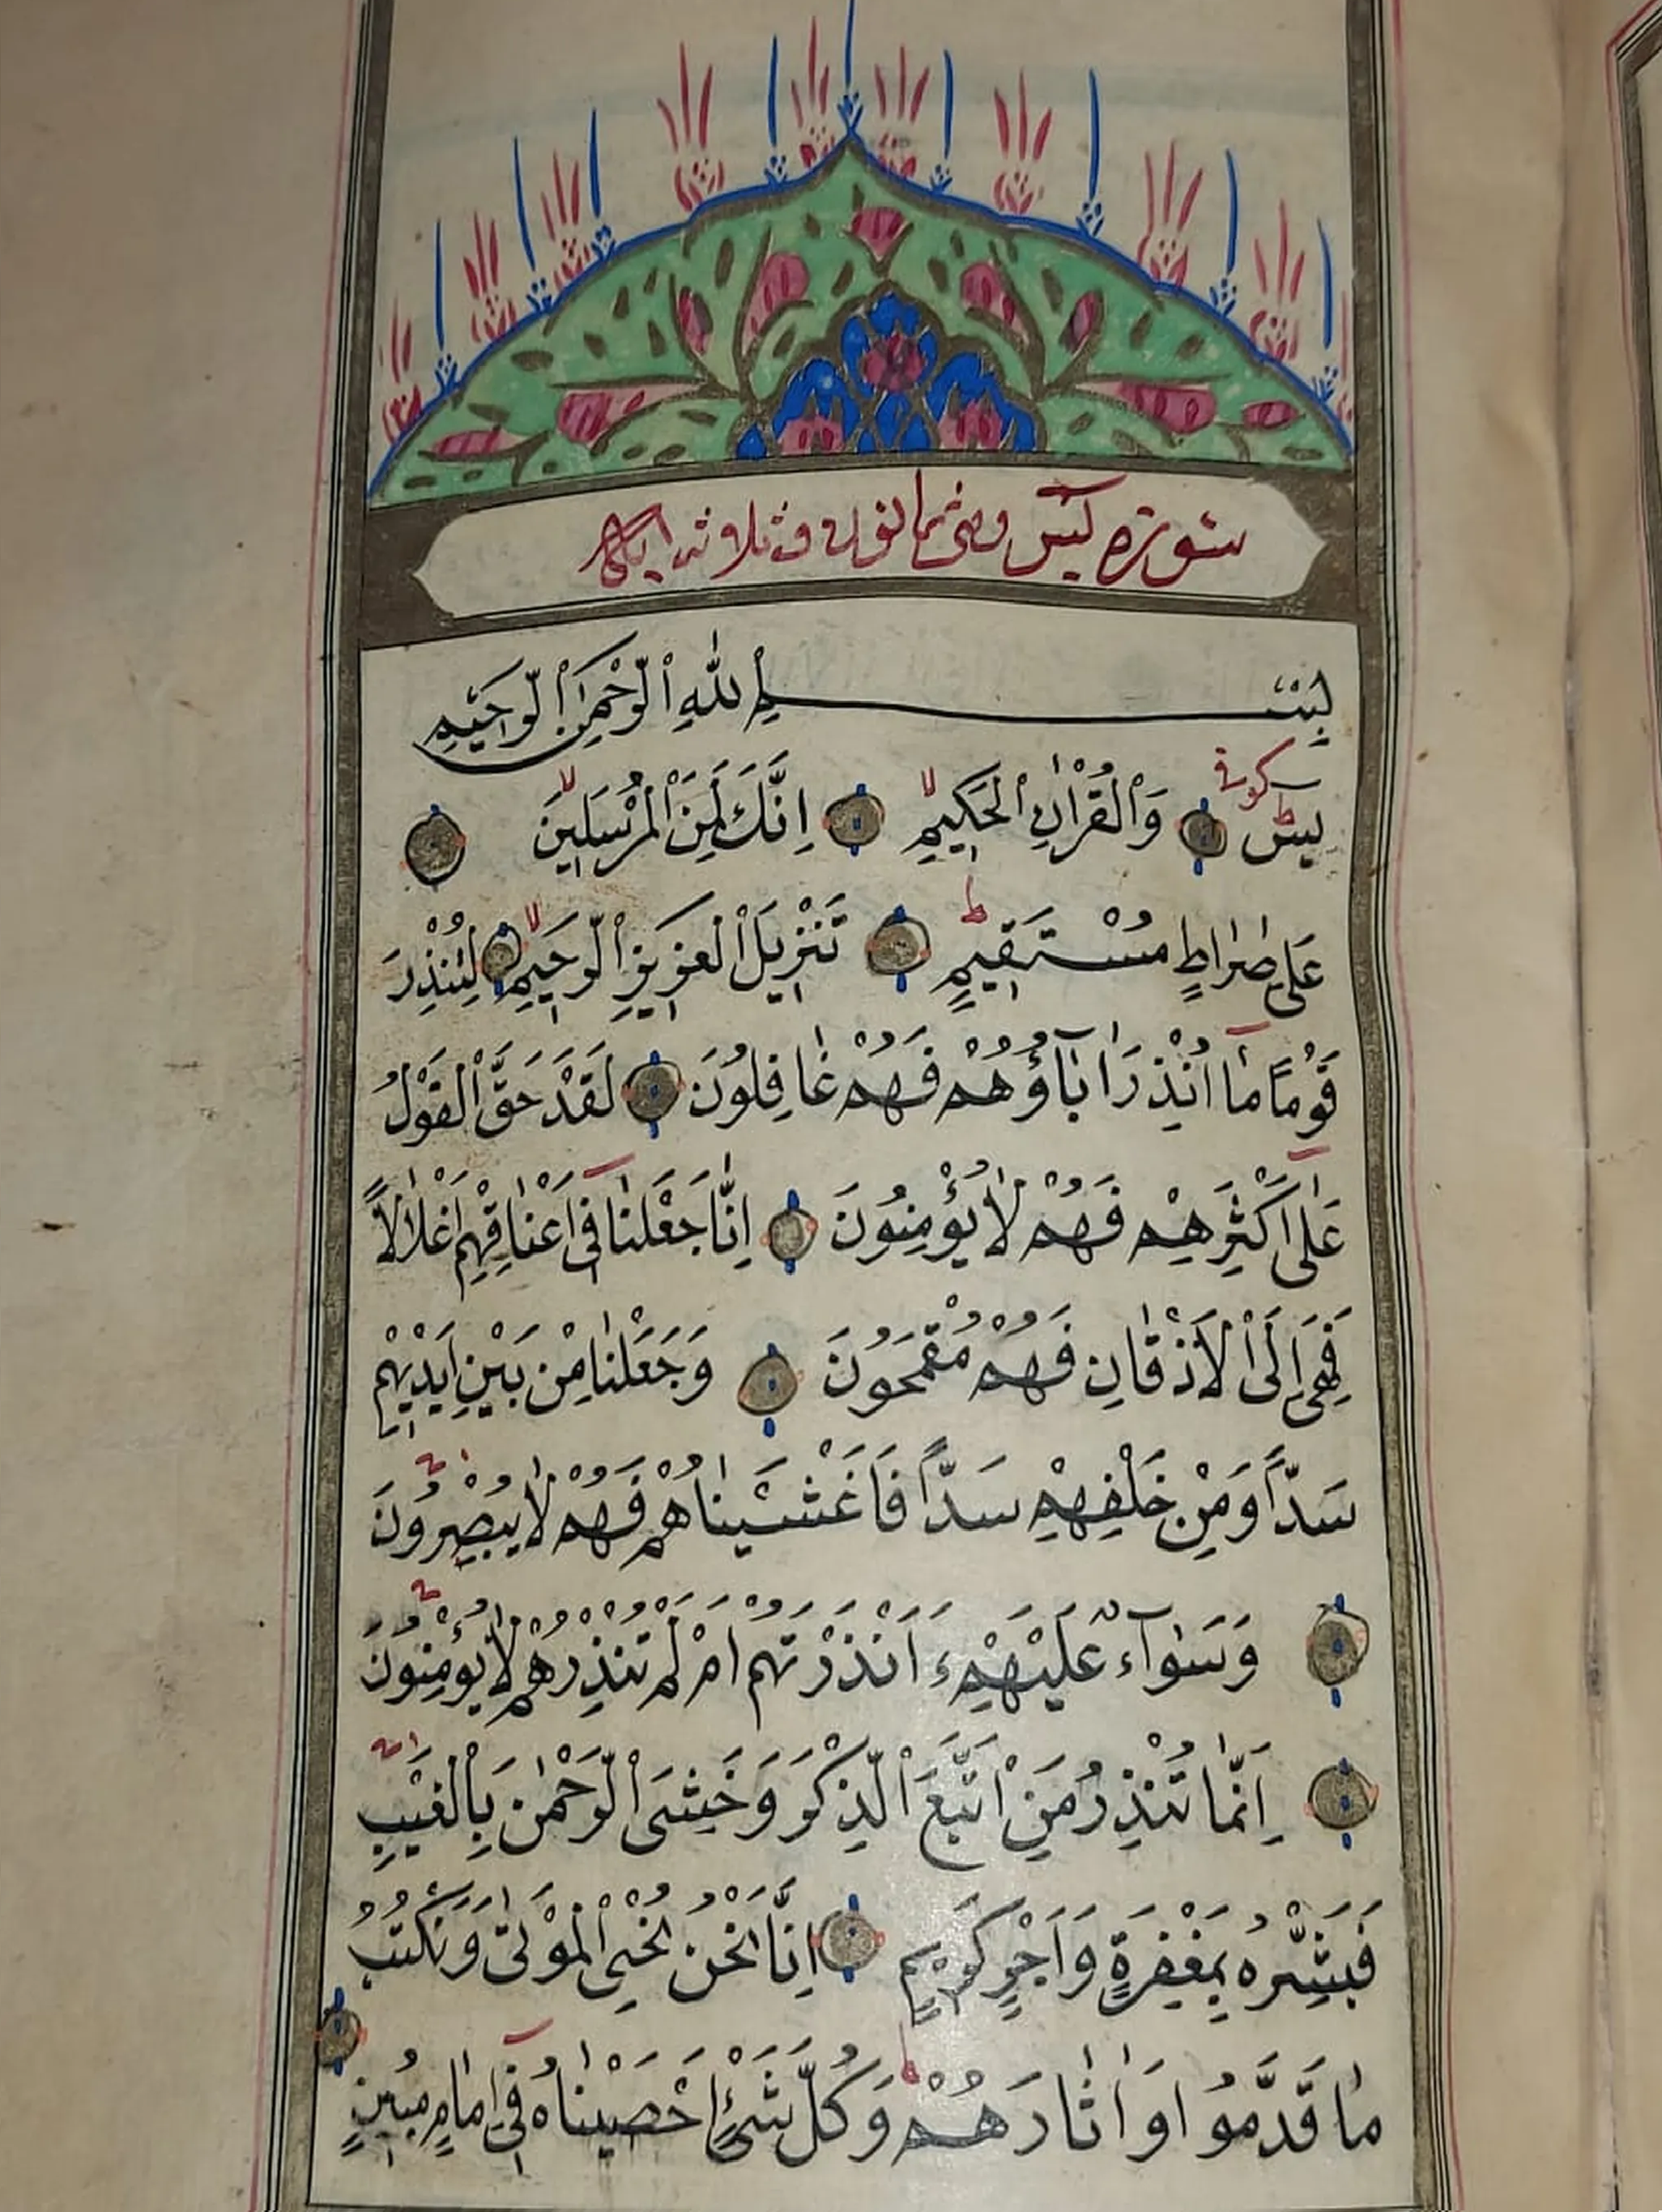 سورة يس وهي ثمانون وثلاث اية
بِسْمِ اللّٰهِ الرَّحْمٰنِ الرَّحِيمِ
يسۤ كوفي وَالْقُرْاٰنِ الْحَكِيمِ اِنَّكَ لَمِنَ الْمُرْسَلِينَ
عَلٰى صِرَاطٍ مُسْتَقِيمٍ تَنْزِيلَ الْعَزِيزِ الرَّحِيمِ لِتُنْذِرَ
قَوْمًا مَا اُنْذِرَ اٰبَاۤؤُهُمْ فَهُمْ غَافِلُونَ لَقَدْ حَقَّ الْقَوْلُ
عَلٰى اَكْثَرِهِمْ فَهُمْ لَا يُؤْمِنُونَ اِنَّا جَعَلْنَا فِى اَعْنَاقِهِمْ اَغْلَالًا
فَهِىَ اِلَى الْاَذْقَانِ فَهُمْ مُقْمَحُونَ وَجَعَلْنَا مِنْ بَيْنِ اَيْدِيهِمْ
سَدًّا وَمِنْ خَلْفِهِمْ سَدًّا فَاَغْشَيْنَاهُمْ فَهُمْ لَا يُبْصِرُونَ
وَسَوَاۤءٌ عَلَيْهِمْ ءَاَنْذَرْتَهُمْ اَمْ لَمْ تُنْذِرْهُمْ لَا يُؤْمِنُونَ
اِنَّمَا تُنْذِرُ مَنِ اتَّبَعَ الذِّكْرَ وَخَشِىَ الرَّحْمٰنَ بِالْغَيْبِ
فَبَشِّرْهُ بِمَغْفِرَةٍ وَاَجْرٍ كَرِيمٍ اِنَّا نَحْنُ نُحْيِى الْمَوْتٰى وَنَكْتُبُ
مَا قَدَّمُوا وَاٰثَارَهُمْ وَكُلَّ شَىْءٍ اَحْصَيْنَاهُ فِى اِمَامٍ مُبِينٍ